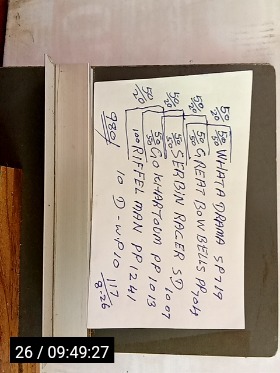 50/20 50/50 WHATA DRAMA SP719
50/20 50/50 GREAT BOW BELLS PP
50/20 50/50 SERBIN RACER SD 1007
50/20 50/50 GO KHARTOUM PP 1013
100 RIFFELMAN PP1241
980/ 10 D-WP10 117
8-26
26 / 09:49:27